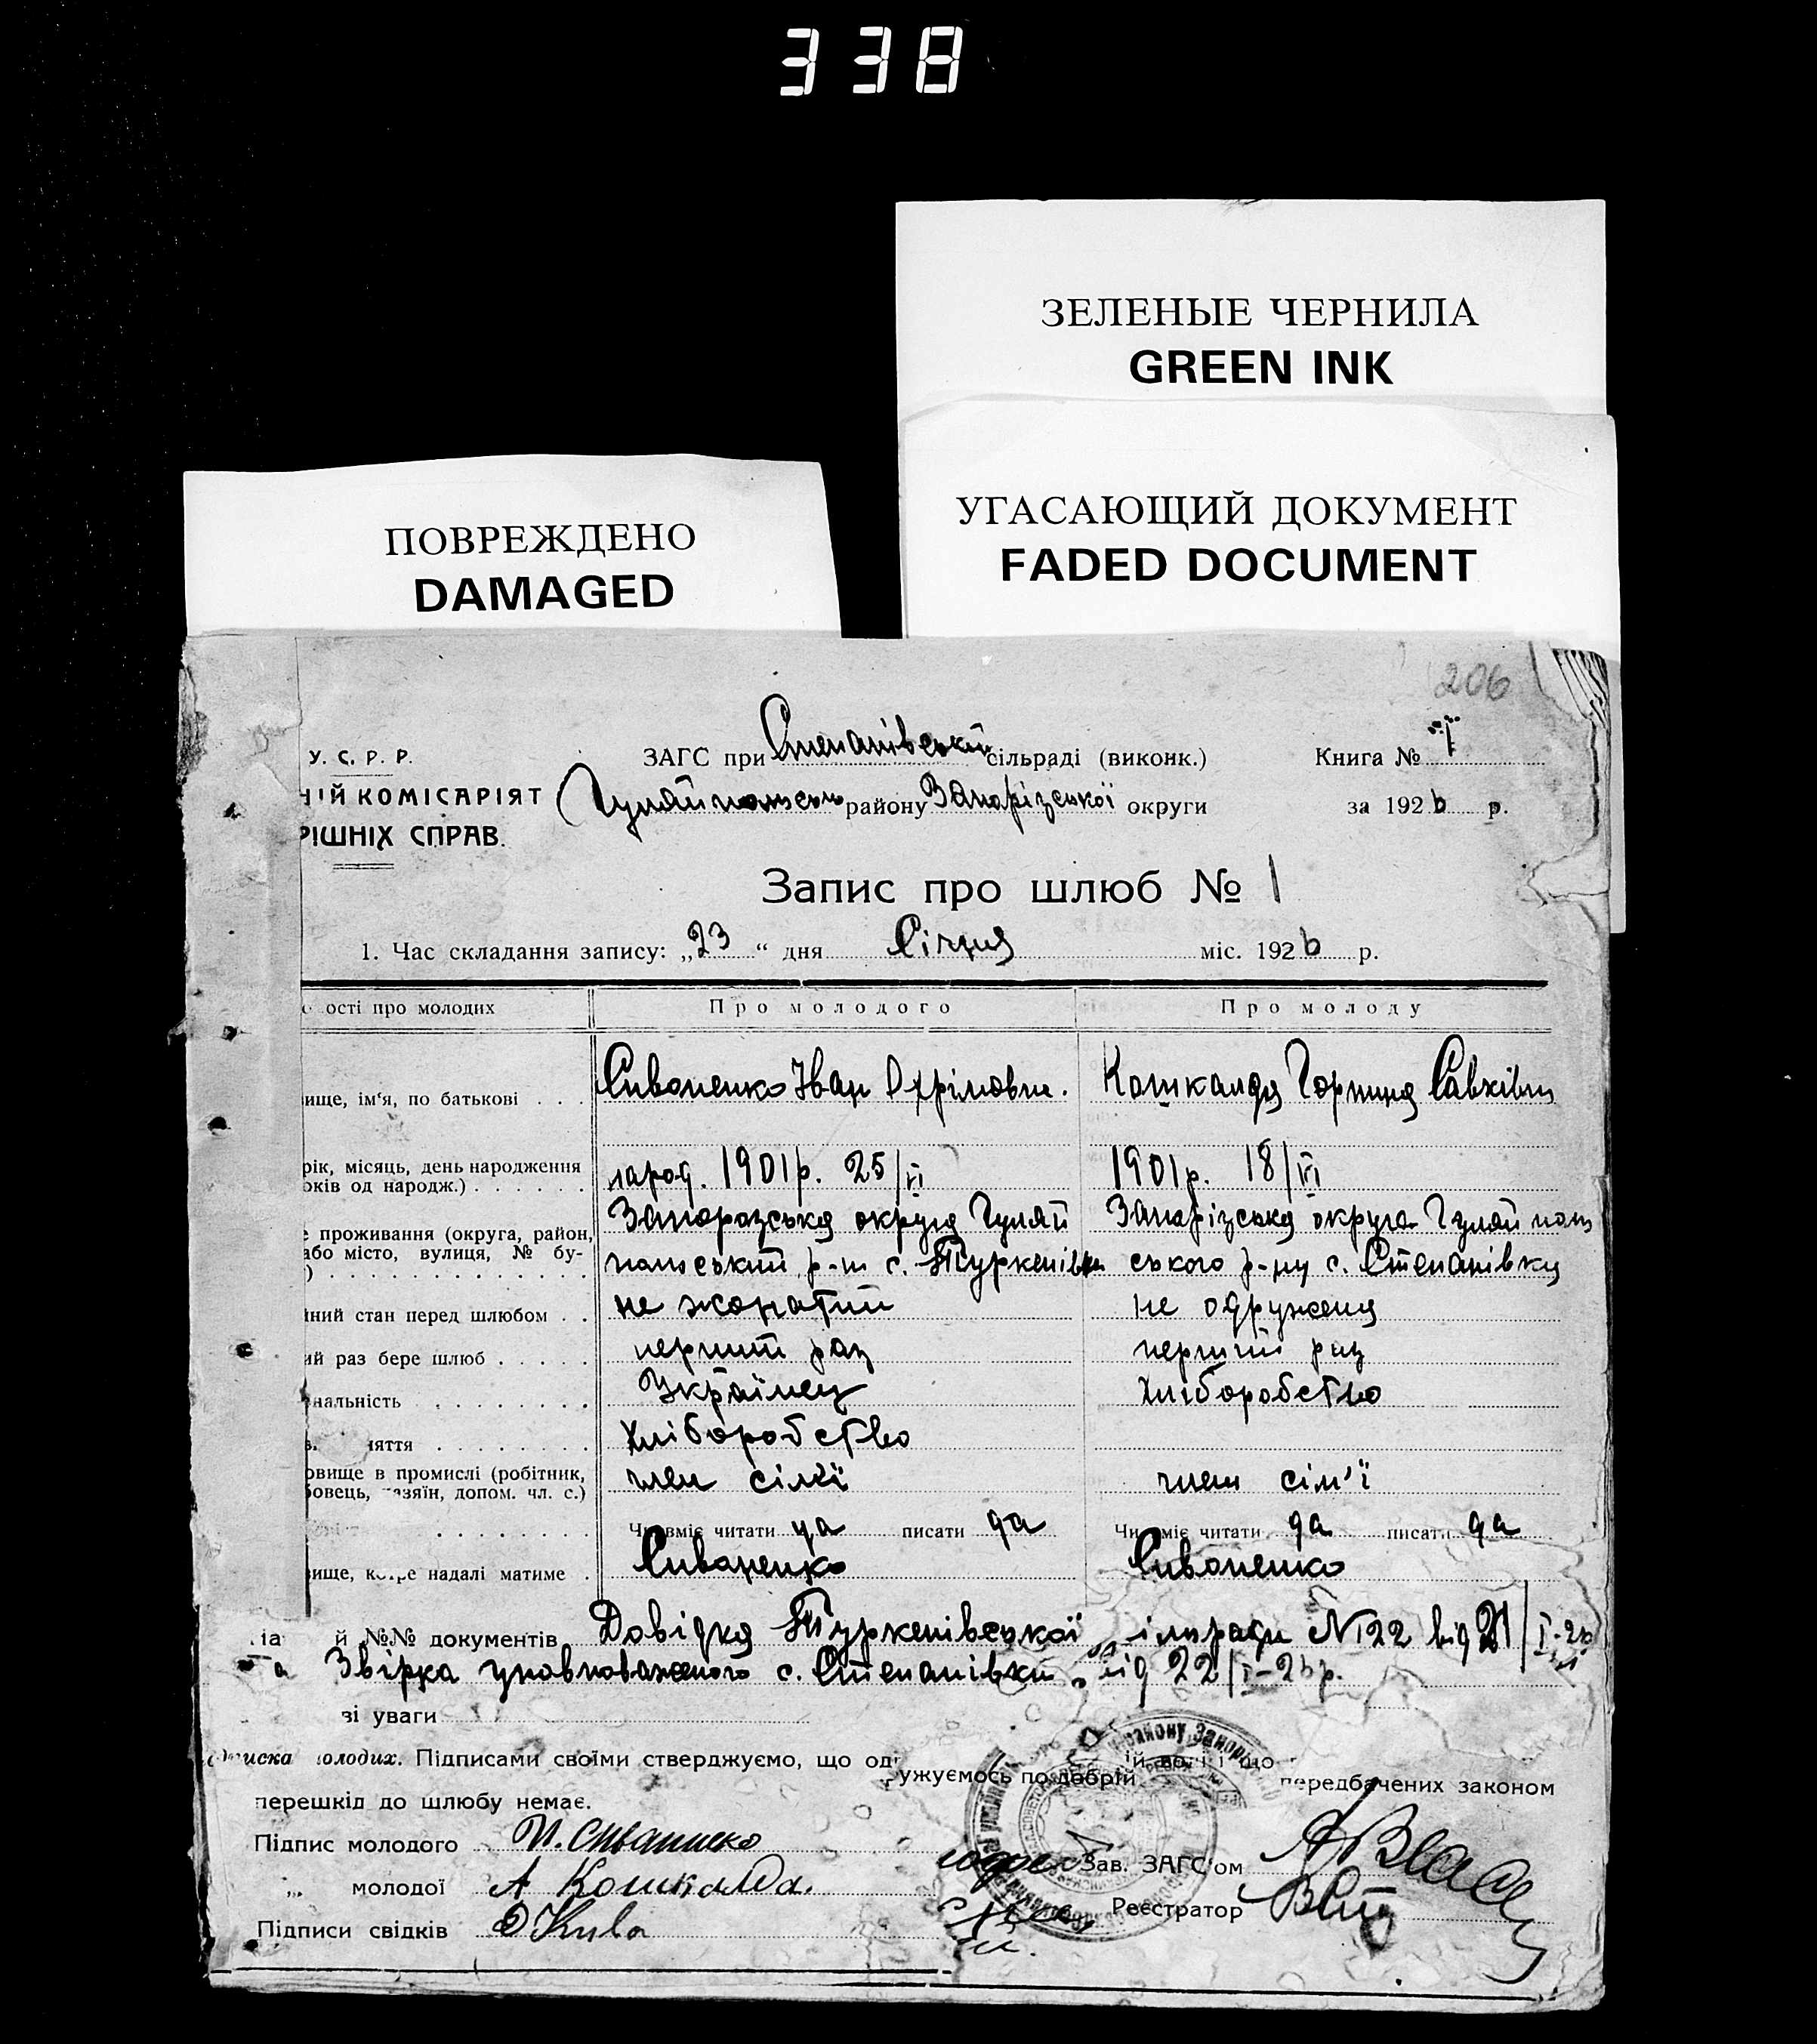 338
ЗЕЛЕНЫЕ ЧЕРНИЛА
GREEN INK
УГАСАЮЩИЙ ДОКУМЕНТ
FADED DOCUMENT
ПОВРЕЖДЕНО
DAMAGED
206
У. С. Р. Р.
НІЙ КОМІСАРІЯТ
РІШНІХ СПРАВ.
ЗАГС при Степанівській сільраді (виконк.)
району Запорізської округи
Книга №
за 1926 р.
Запис про шлюб № 1
1. Час складання запису: „23“ дня Січня міс. 1926 р.
ості про молодих
Про молодого
Про молоду
ище, ім'я, по батькові . . .
Сивоненко Іван Охрімович.
Кошкалда Горпина Савківна
рік, місяць, день народження
оків од народж.) . . . . . .
народ. 1901 р. 25/VI
1901 р. 18/VI
проживання (округа, район,
або місто, вулиця, № бу-
) . . . . . . . . . . . . .
Запоразська округа Гуляй
польський р-н с. Туркенівка
Запарізська округа Гуляй поль
ського р-ну с. Степанівка
ний стан перед шлюбом . .
не жонатий
не одружена
ий раз бере шлюб . . . . .
перший раз
перший раз
нальність . . . . . . . .
Українец
хліборобство
няття . . . . . . . .
хліборобство
овище в промислі (робітник,
бовець, хазяїн, допом. чл. с.)
член сім'ї
член сім'ї
Чи вміє читати да писати да
Чи вміє читати да писати да
ище, котре надалі матиме .
Сивоненко
Сивоненко
й №№ документів Довідка Туркенівської сільради N 122 від 21/I-26
Звірка уповноваженого с. Степанівки від 22/I-26 р.
зі уваги
писка молодих. Підписами своїми стверджуємо, що од
ружуємось по добрій волі і що передбачених законом
перешкід до шлюбу немає.
Підпис молодого
„ молодої А Кошкалда.
Підписи свідків
Зав. ЗАГС'ом
Реєстратор
району Запор